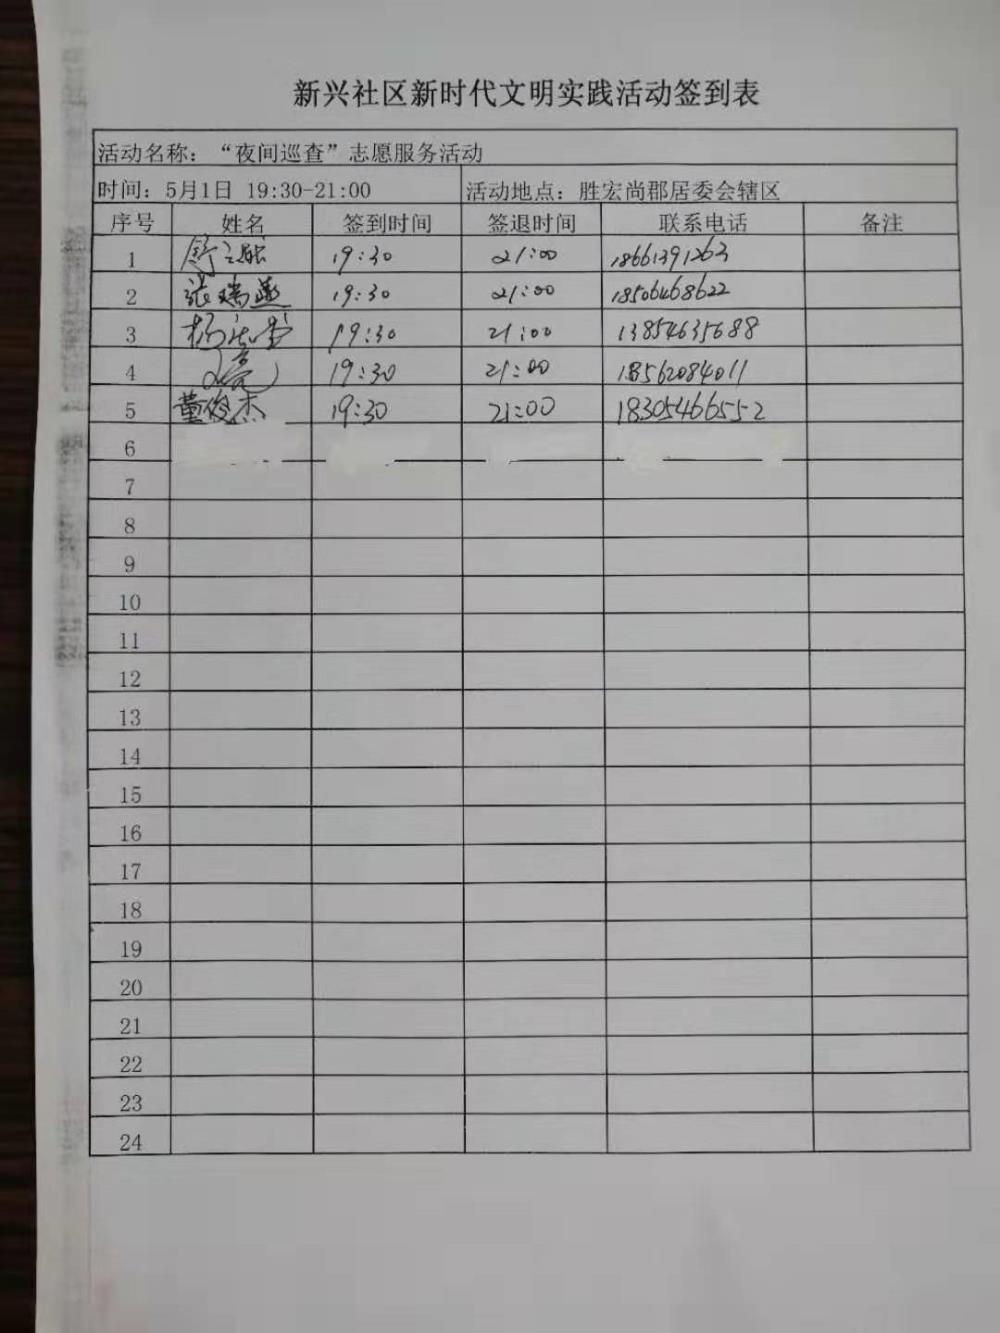 新兴社区新时代文明实践活动签到表
活动名称：“夜间巡查”志愿服务活动
时间：5月1日 19:30-21:00 活动地点：胜宏尚郡居委会辖区
序号 姓名 签到时间 签退时间 联系电话 备注
1 19:30 21:00 18661391263
2 张瑞燕 19:30 21:00 18506468622
3 19:30 21:00 13854635688
4 19:30 21:00 18562084011
5 董俊杰 19:30 21:00 18305466552
6
7
8
9
10
11
12
13
14
15
16
17
18
19
20
21
22
23
24